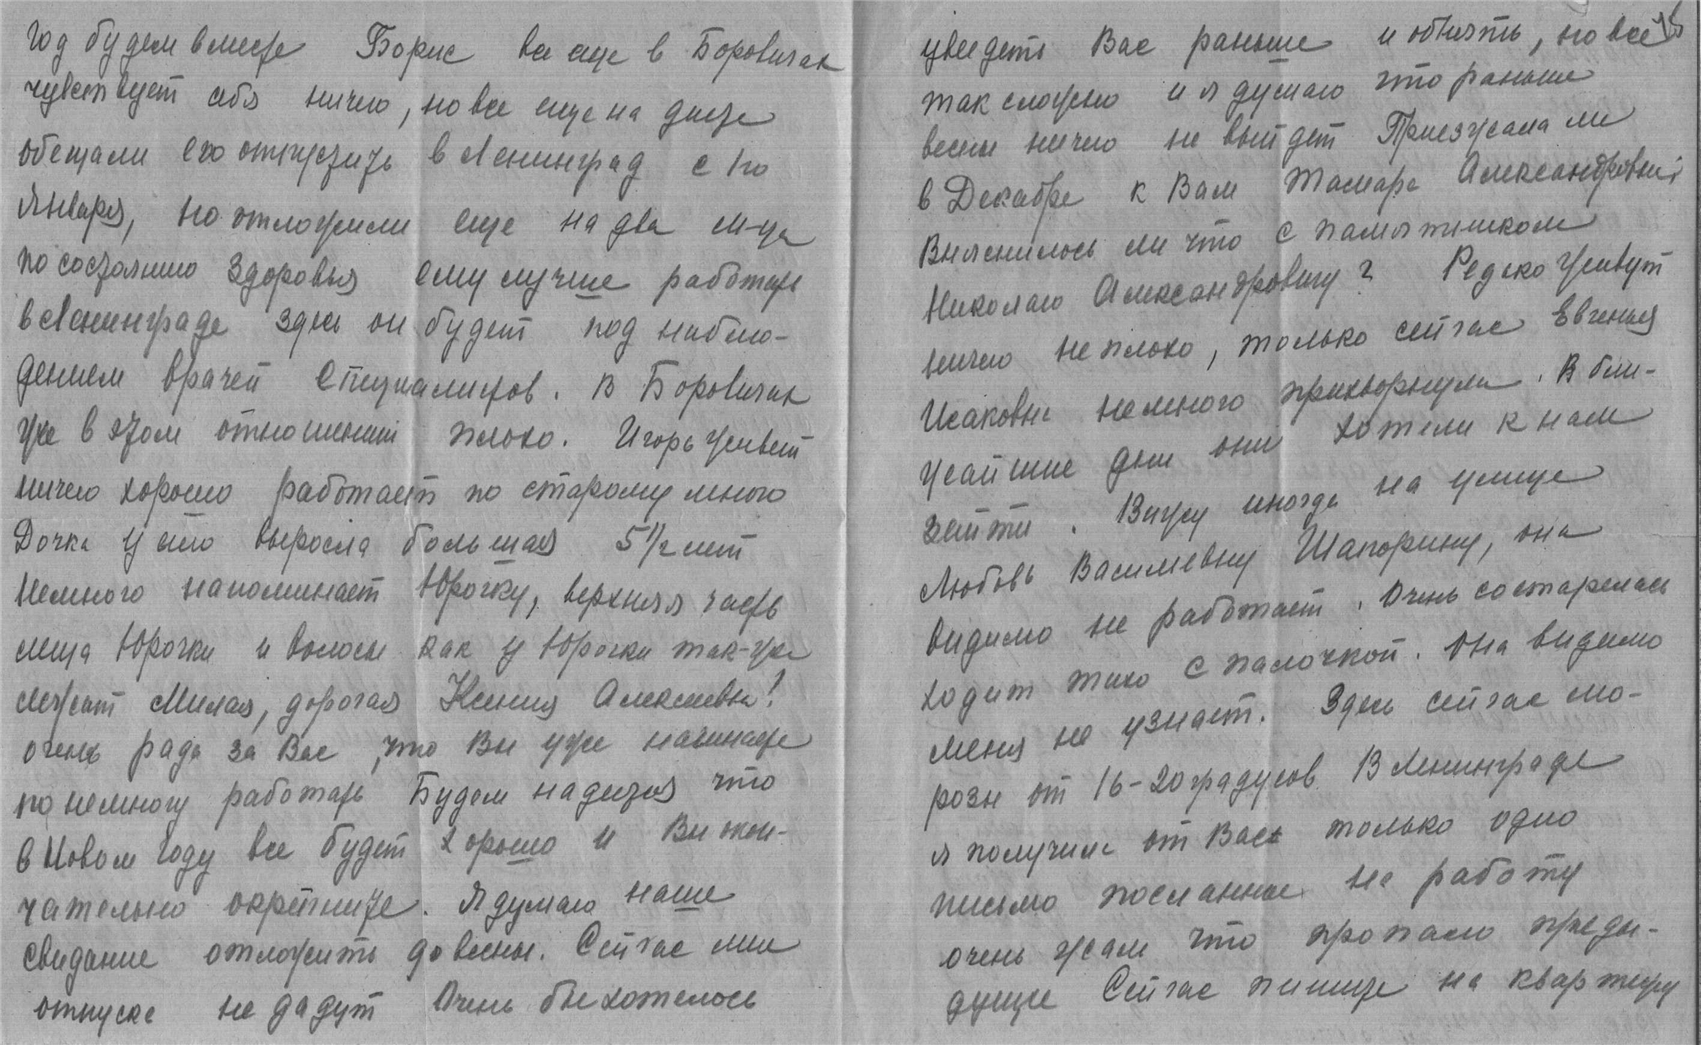 год будем вместе Борис все еще в Боровичах
чувствует себя ничего, но все еще на диете
обещали его отпустить в Ленинград с 1го
Января, но отложили еще на два м-ца
по состоянию здоровья ему лучше работать
в Ленинграде здесь он будет под наблю-
дением врачей специалистов. В Боровичах
уже в этом отношении плохо. Игорь живет
ничего хорошо работает по старому много
Дочка у него выросла большая 5 1/2 лет
Немного напоминает Юрочку, верхняя часть
лица Юрочки и волосы как у Юрочки так-же
лежат Милая, дорогая Ксения Алексеевна!
очень рада за Вас, что Вы уже начинаете
по немногу работать Будем надеяся что
в Новом Году все будет хорошо и Вы окон-
чательно окрепните. Я думаю наше
свидание отложить до весны. Сейчас мне
отпуска не дадут Очень бы хотелось
увидеть Вас раньше и обнять, но все
так сложно и я думаю что раньше
весны ничего не выйдет Приезжала ли
в Декабре к Вам Тамара Александровна
Выяснилось ли что с памятником
Николаю Александровичу? Редко живут
ничего неплохо, только сейчас Евгения
Исаковна немного прихворнула. В бли-
жайшие дни они хотели к нам
зайти. Вижу иногда на улице
Любовь Васильевну Шапорину, она
видимо не работает. Очень состарелась
ходит тихо с палочкой. Она видимо
меня не узнает. Здесь сейчас мо-
розы от 16-20 градусов В Ленинграде
я получила от Вас только одно
письмо посланное на работу
очень жаль что пропало преды-
дущее Сейчас пишите на квартиру